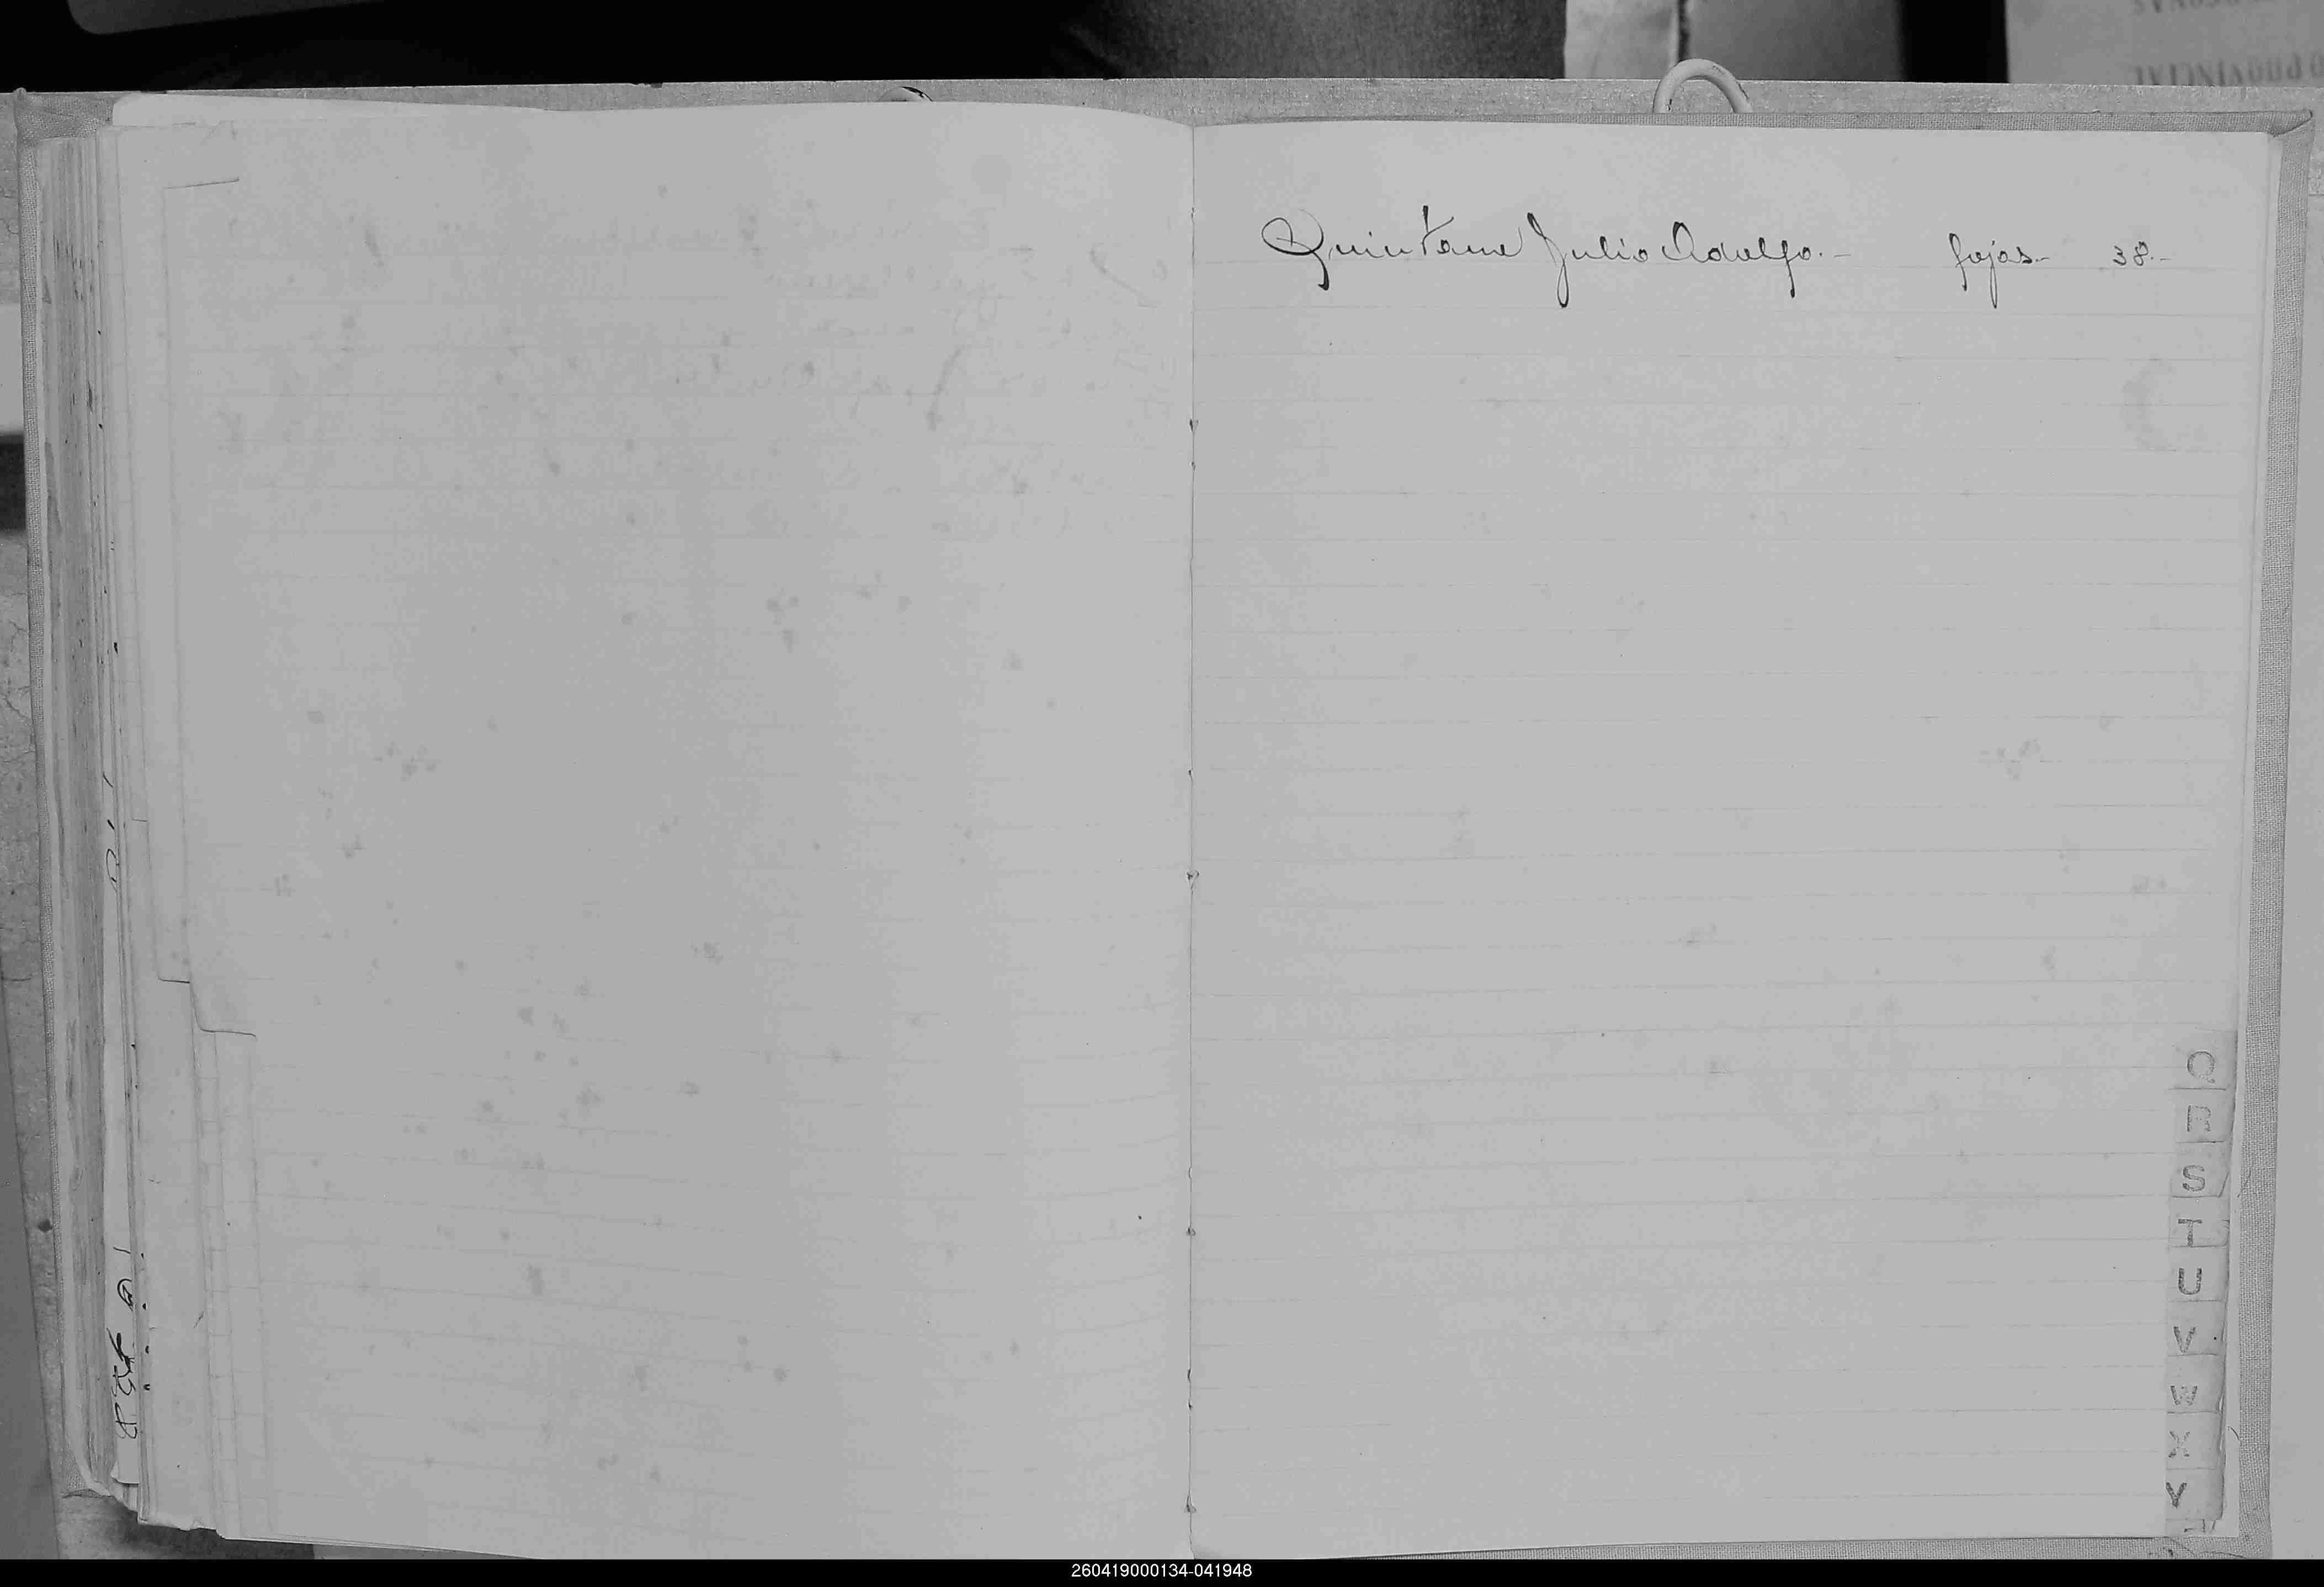 Quintana Julio Adolfo.- fojas.- 38.-
Q
R
S
T
U
V
W
X
Y
260419000134-041948